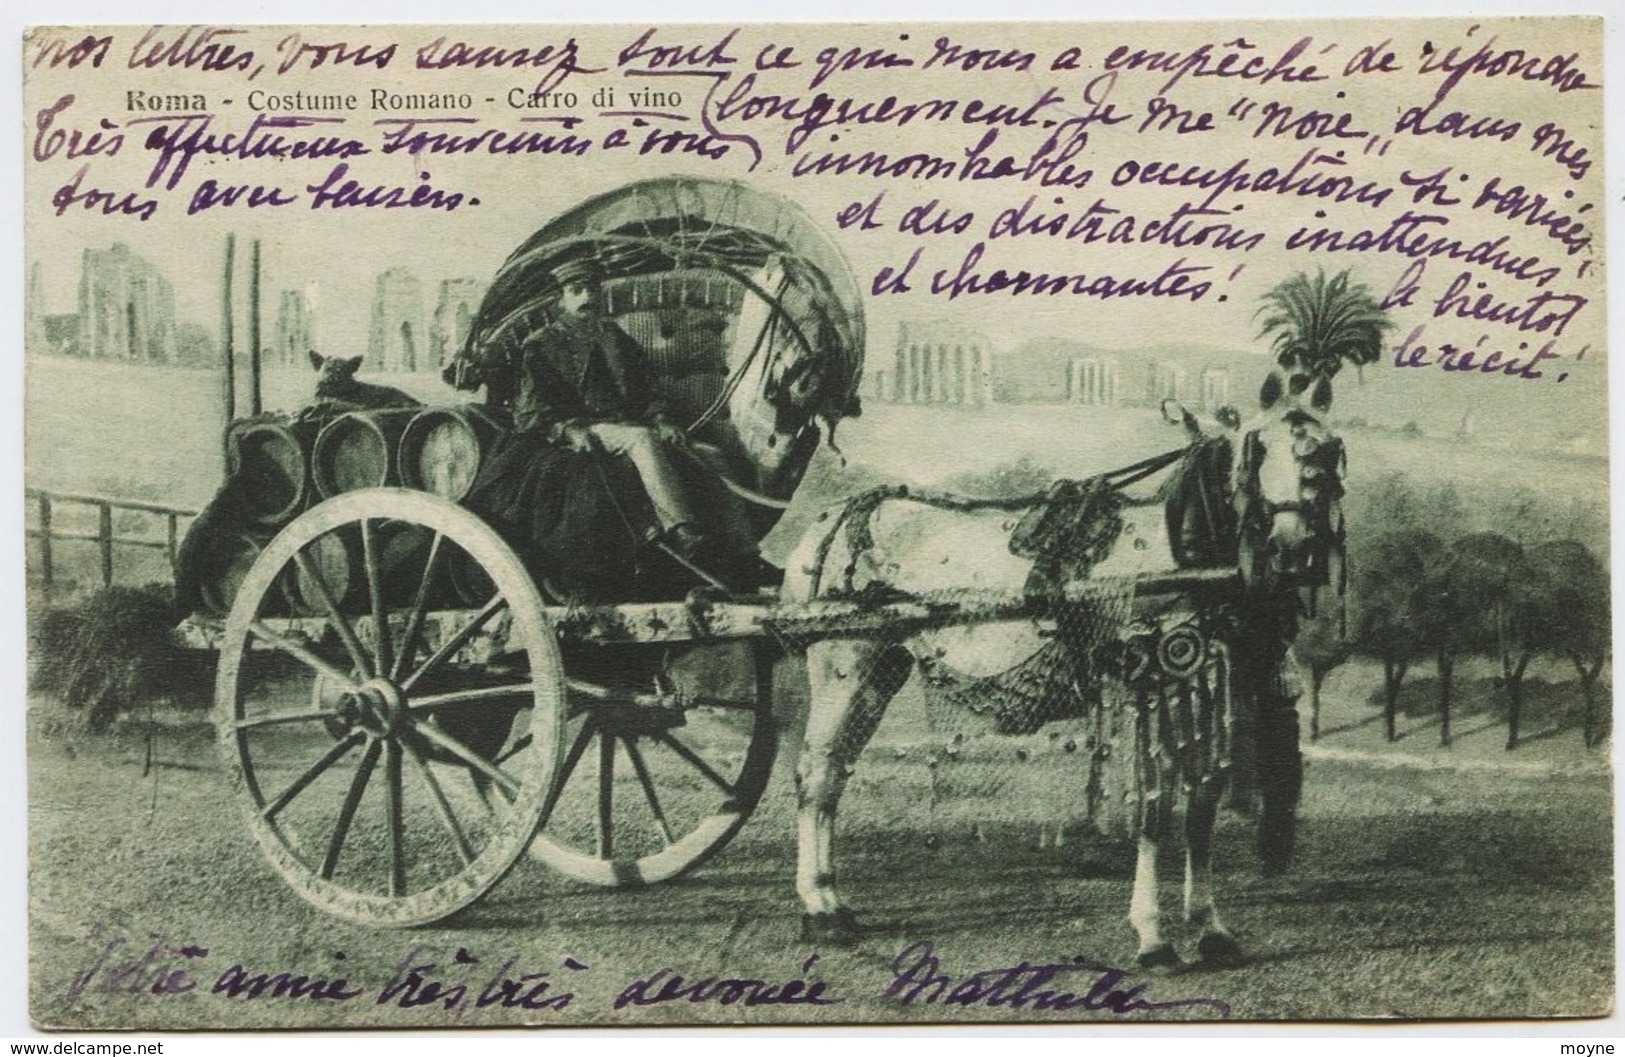 nos lettres, vous saurez tout ce qui nous a empêché de répondre
Roma - Costume Romano - Carro di vino
longuement. Je me "noie" dans mes
innombrables occupations si variées
et des distractions inattendues
et charmantes! à bientôt
le récit!
Très affectueux souvenirs à vous
tous avec baisers.
Votre amie très, très dévouée Mathilde
moyne
www.delcampe.net